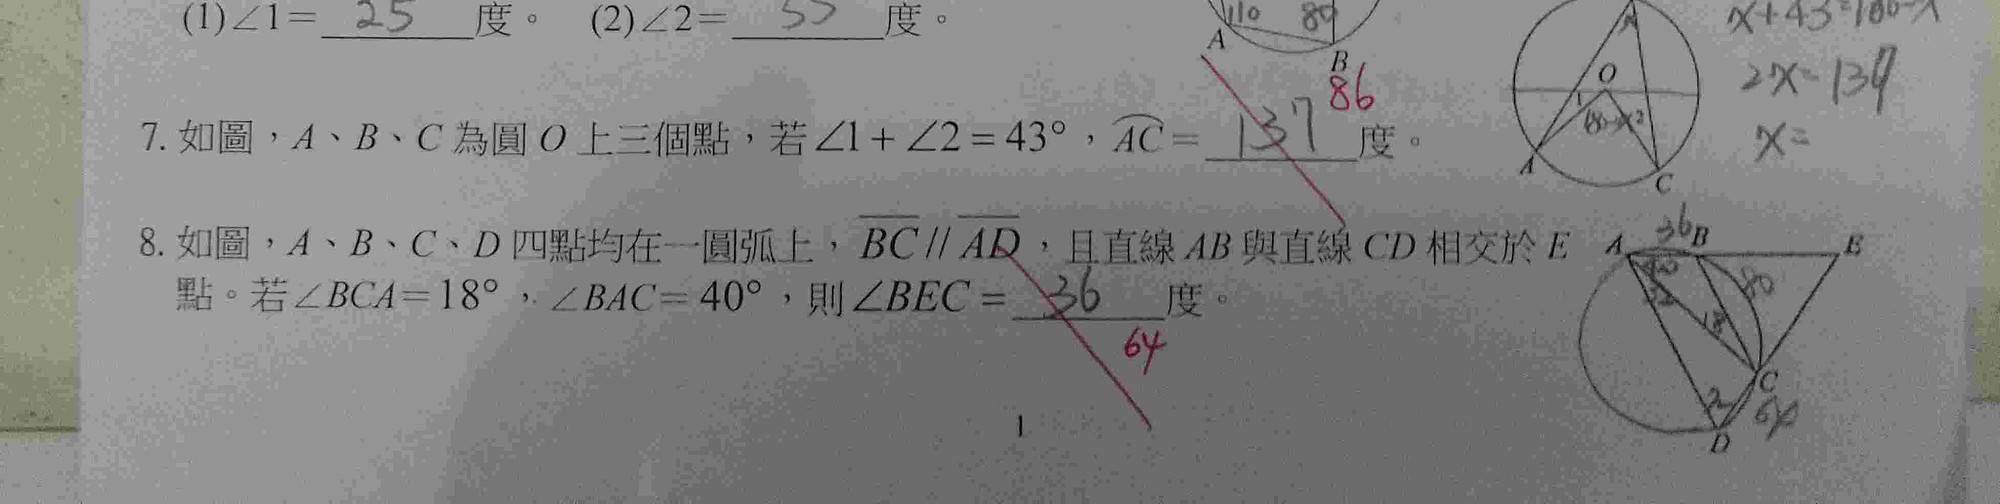 (1)∠1= 25 度。 (2)∠2= 55 度。
110 80
A
B
86
7. 如圖，A、B、C 為圓 O 上三個點，若∠1+∠2=43°，AC= 137 度。
O
1
2
A
C
2x=137
x=
8. 如圖，A、B、C、D 四點均在一圓弧上，BC // AD，且直線 AB 與直線 CD 相交於 E
點。若∠BCA=18°，∠BAC=40°，則∠BEC= 36 度。
64
36
A B E
40
80
18
C
D
64
1